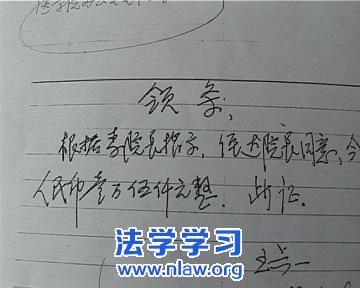 领条;
根据李院长指示,伍达院长同意,今
人民币壹万伍仟元整. 此证.
法学学习
www.nlaw.org